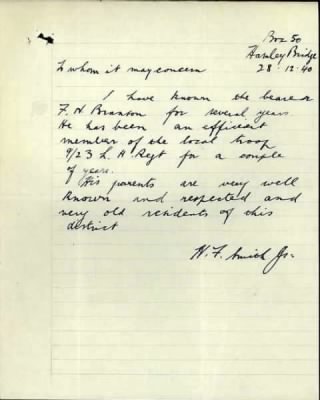 Box 50
Hamley Bridge
28.12.40
To whom it may concern
I have known the bearer
F. N. Branson for several years
He has been an efficient
member of the local troop
9/23 L. H. Regt for a couple
of years.
His parents are very well
known and respected and
very old residents of this
district
H. F. Smith Jr.